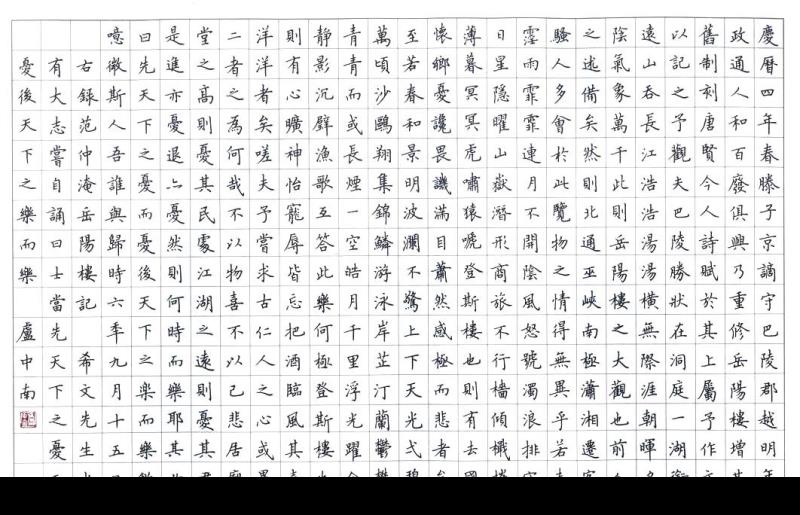 慶曆四年春滕子京謫守巴陵郡越明
政通人和百廢俱興乃重修岳陽樓增
舊制刻唐賢今人詩賦於其上屬予作
以記之予觀夫巴陵勝狀在洞庭一湖
遠山吞長江浩浩湯湯橫無際涯朝暉
陰氣象萬千此則岳陽樓之大觀也前
之述備矣然則北通巫峽南極瀟湘遷
騷人多會於此覽物之情得無異乎若
霪雨霏霏連月不開陰風怒號濁浪排
日星隱曜山嶽潛形商旅不行檣傾檝
薄暮冥冥虎嘯猿嗁登斯樓也則有去
懷鄉憂讒畏譏滿目蕭然感極而悲者
至若春和景明波瀾不驚上下天光弌
萬頃沙鷗翔集錦鱗游泳岸芷汀蘭鬱
青青而或長煙一空皓月千里浮光躍
靜影沉壁漁歌互答此樂何極登斯樓
則有心曠神怡寵辱皆忘把酒臨風其
洋洋者矣嗟夫予嘗求古仁人之心或
二者之為何哉不以物喜不以己悲居
堂之高則憂其民處江湖之遠則憂其
是進亦憂退亦憂然則何時而樂耶其
曰先天下之憂而憂後天下之楽而樂
噫微斯人吾誰與歸時六年九月十五
右錄范仲淹岳陽樓記 希文先生
有大志嘗自誦曰士當先天下之憂
憂後天下之樂而樂 盧中南